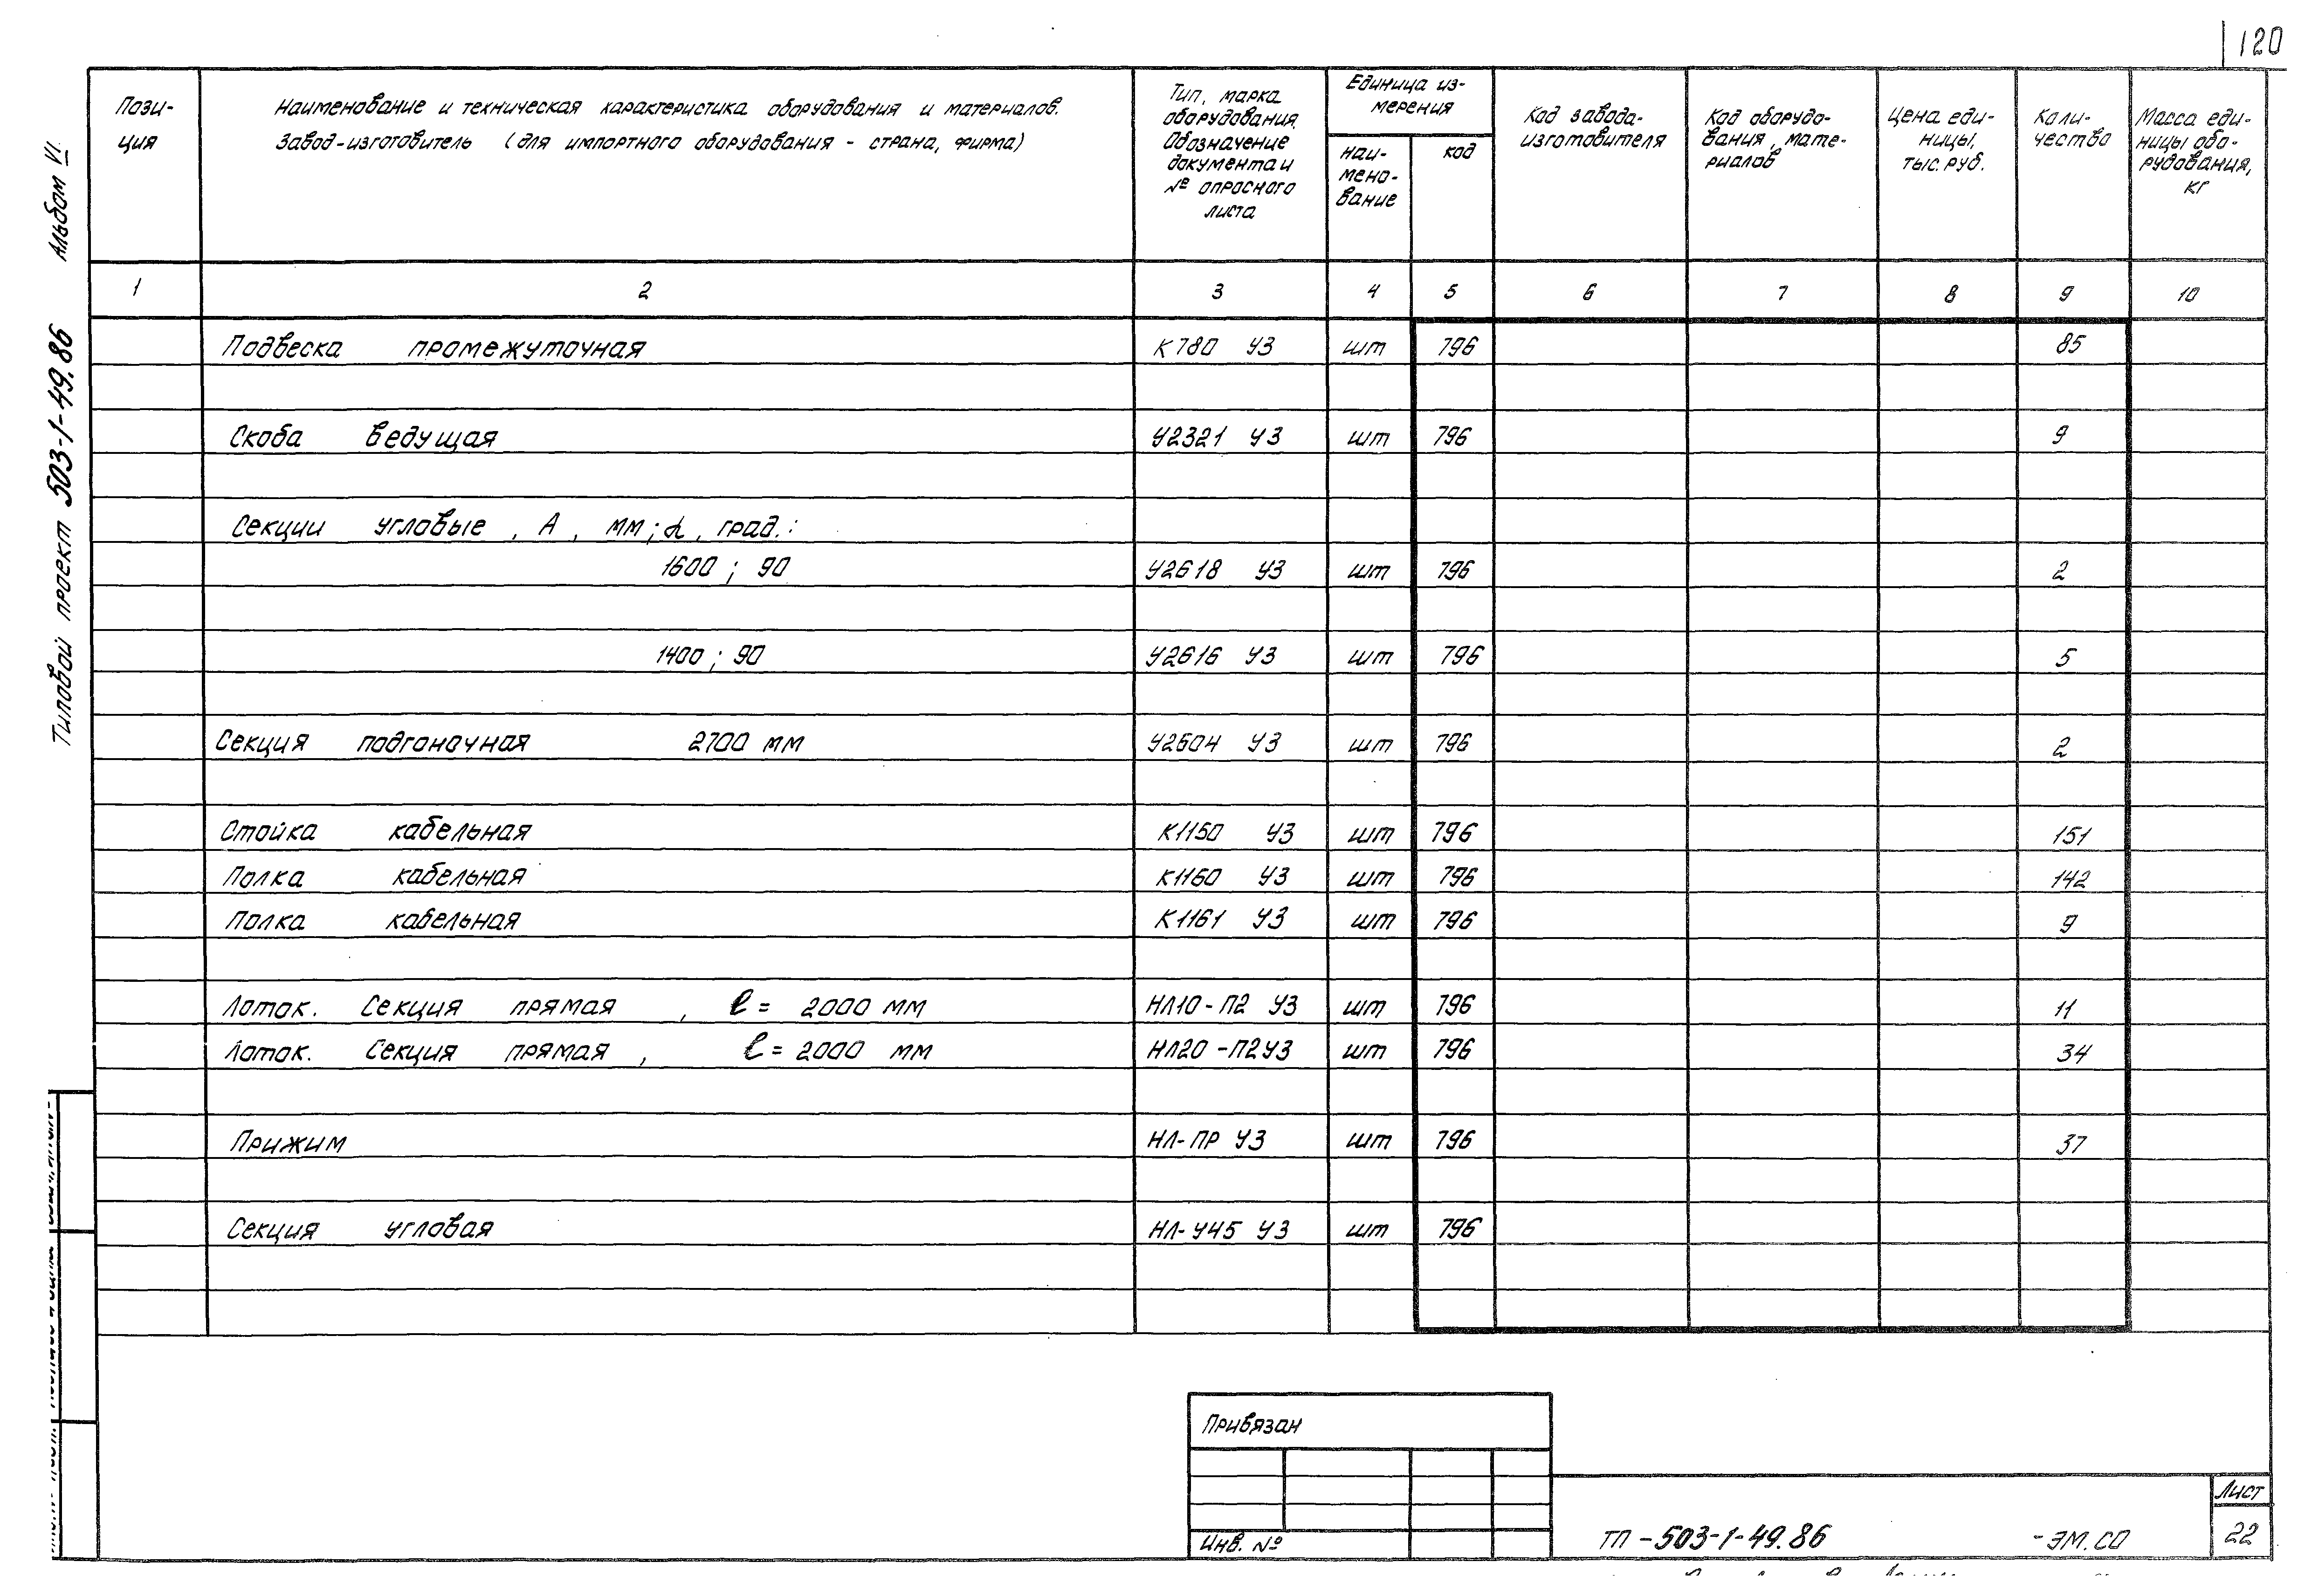 120
Альбом VI
Типовой проект 503-1-49.86
Пози-
ция
Наименование и техническая характеристика оборудования и материалов.
Завод-изготовитель (для импортного оборудования - страна, фирма)
Тип, марка
оборудования.
Обозначение
документа и
№ опросного
листа
Единица из-
мерения
наи-
мено-
вание
код
Код завода-
изготовителя
Код оборудо-
вания, мате-
риалов
Цена еди-
ницы,
тыс. руб.
Коли-
чество
Масса еди-
ницы обо-
рудования,
кг
1 2 3 4 5 6 7 8 9 10
Подвеска промежуточная К780 У3 шт 796 85
Скоба ведущая У2321 У3 шт 796 9
Секции угловые, А, мм; α, град.:
1600; 90 У2618 У3 шт 796 2
1400; 90 У2616 У3 шт 796 5
Секция подгоночная 2700 мм У2604 У3 шт 796 2
Стойка кабельная К1150 У3 шт 796 151
Полка кабельная К1160 У3 шт 796 142
Полка кабельная К1161 У3 шт 796 9
Лоток. Секция прямая, ℓ = 2000 мм НЛ10-П2 У3 шт 796 11
Лоток. Секция прямая, ℓ = 2000 мм НЛ20-П2У3 шт 796 34
Прижим НЛ-ПР У3 шт 796 37
Секция угловая НЛ-У45 У3 шт 796
Привязан
Инв. №
ТП-503-1-49.86 -ЭМ.СО
Лист
22